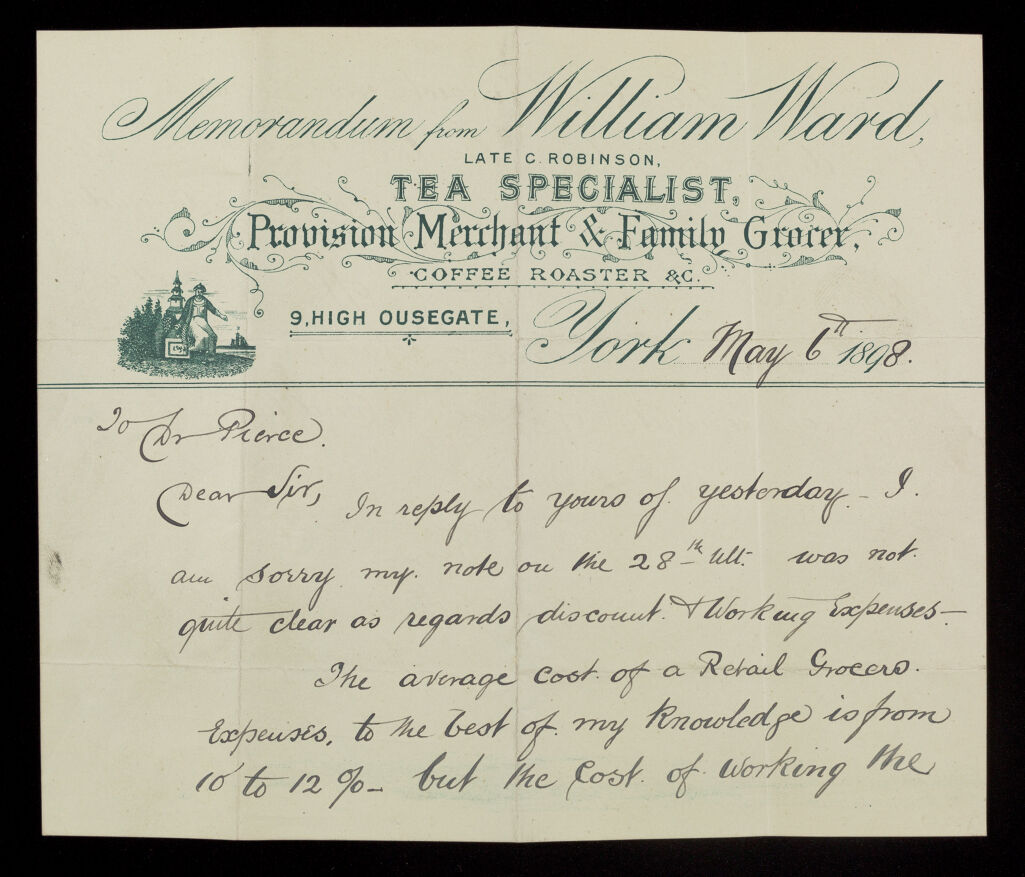 Memorandum from William Ward,
LATE C. ROBINSON,
TEA SPECIALIST,
Provision Merchant & Family Grocer,
COFFEE ROASTER &C.
9, HIGH OUSEGATE,
York May 6th 1898.
To Dr Pierce.
Dear Sir,
In reply to yours of yesterday - I.
am sorry my note on the 28th Ult. was not.
quite clear as regards discount. & Working Expenses -
The average cost of a Retail Grocers.
Expenses, to the best of my Knowledge is from
10 to 12 % - but the Cost of working the